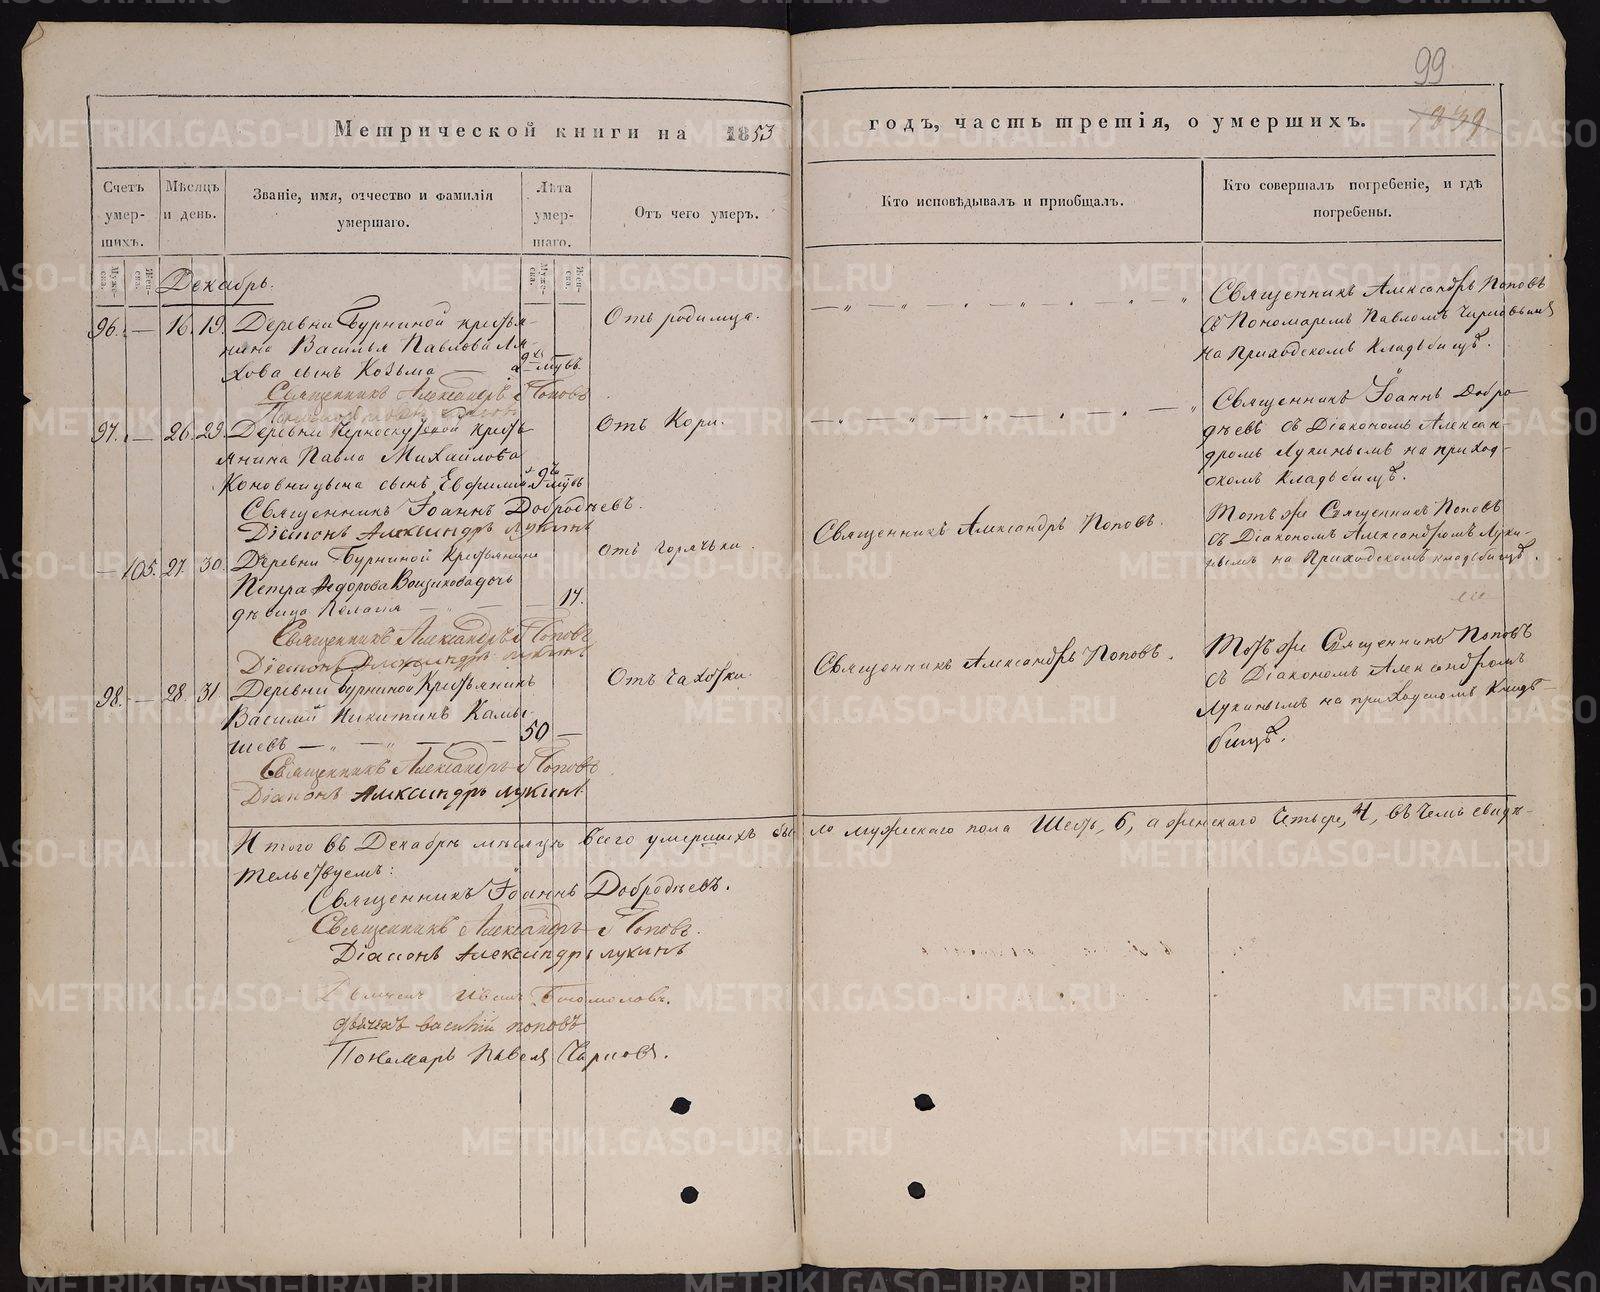 99
Метрической книги на 1853
годъ, часть третія, о умершихъ.
839
Счетъ умер-шихъ.
Мѣсяцъ и день.
Званіе, имя, отчество и фамилія умершаго.
Лѣта умер-шаго.
Отъ чего умеръ.
Кто исповѣдывалъ и приобщалъ.
Кто совершалъ погребеніе, и гдѣ погребены.
Муже-ска.
Жен-ска.
Муже-ска.
Жен-ска.
Декабрь.
96. — 16. 19. Деревни Бурниной крестья-
нина Василья Павлова Ля-
хова сынъ Козьма — 2хъ мцвъ
Отъ родимца.
Священникъ Александръ Поповъ
съ Пономаремъ Павломъ Чирковымъ
на Приходскомъ Кладьбищѣ.
Священникъ Александръ Поповъ
97. — 26. 29. Деревни Черноскутовой кресть
янина Павла Михайлова
Коновницына сынъ Евфимій 9 мцвъ
Отъ Кори.
Священникъ Іоаннъ Добро
дѣевъ съ Діакономъ Алексан-
дромъ Лукинымъ на приход-
скомъ Кладьбищѣ.
Священникъ Іоаннъ Добродѣевъ.
Діаконъ Александръ Лукинъ
— 105. 27. 30. Деревни Бурниной Крестьянина
Петра Федорова дочь
дѣвица Пелагія — 17.
Отъ горячьки.
Священникъ Александръ Поповъ.
Тотъ же Священникъ Поповъ
съ Діакономъ Александромъ Луки-
нымъ на Приходскомъ кладьбищѣ.
Священникъ Александръ Поповъ
Діаконъ Александръ Лукинъ
98. — 28. 31. Деревни Бурниной Крестьянинъ
Василій Никитинъ Камы-
шевъ — 50 —
Отъ чахотки.
Священникъ Александръ Поповъ.
Тотъ же Священникъ Поповъ
съ Діакономъ Александромъ
Лукинымъ на приходскомъ Кладь-
бищѣ.
Священникъ Александръ Поповъ
Діаконъ Александръ Лукинъ
Итого въ Декабрѣ мѣсяцѣ всего умершихъ было мужескаго пола Шесть, 6, а женскаго Четыре, 4, въ чемъ свидѣ-
тельствуемъ:
Священникъ Іоаннъ Добродѣевъ.
Священникъ Александръ Поповъ.
Діаконъ Александръ Лукинъ
Дьячекъ Иванъ Богомоловъ.
дьячекъ василій поповъ
Пономарь Павелъ Чирковъ.
METRIKI.GASO-URAL.RU